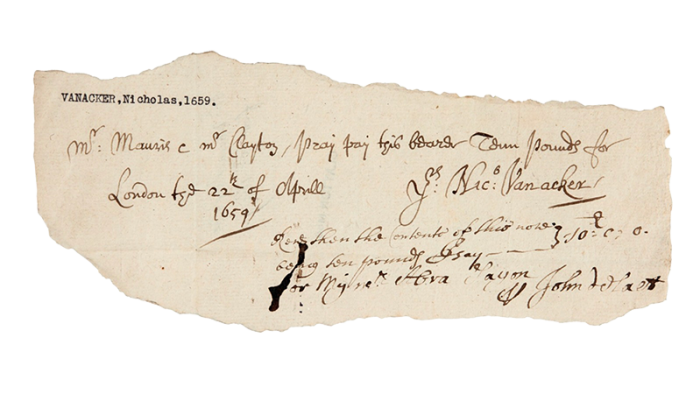 VANACKER,Nicholas,1659.
Mr: Mauris & mr Clayton, Pray pay this bearer Tenn Pounds for
London the 22th of Aprill Yrs. Nico Vanacker
1659
then the Contents of this note
being ten pounds I say 10: 0: 0.
for My John